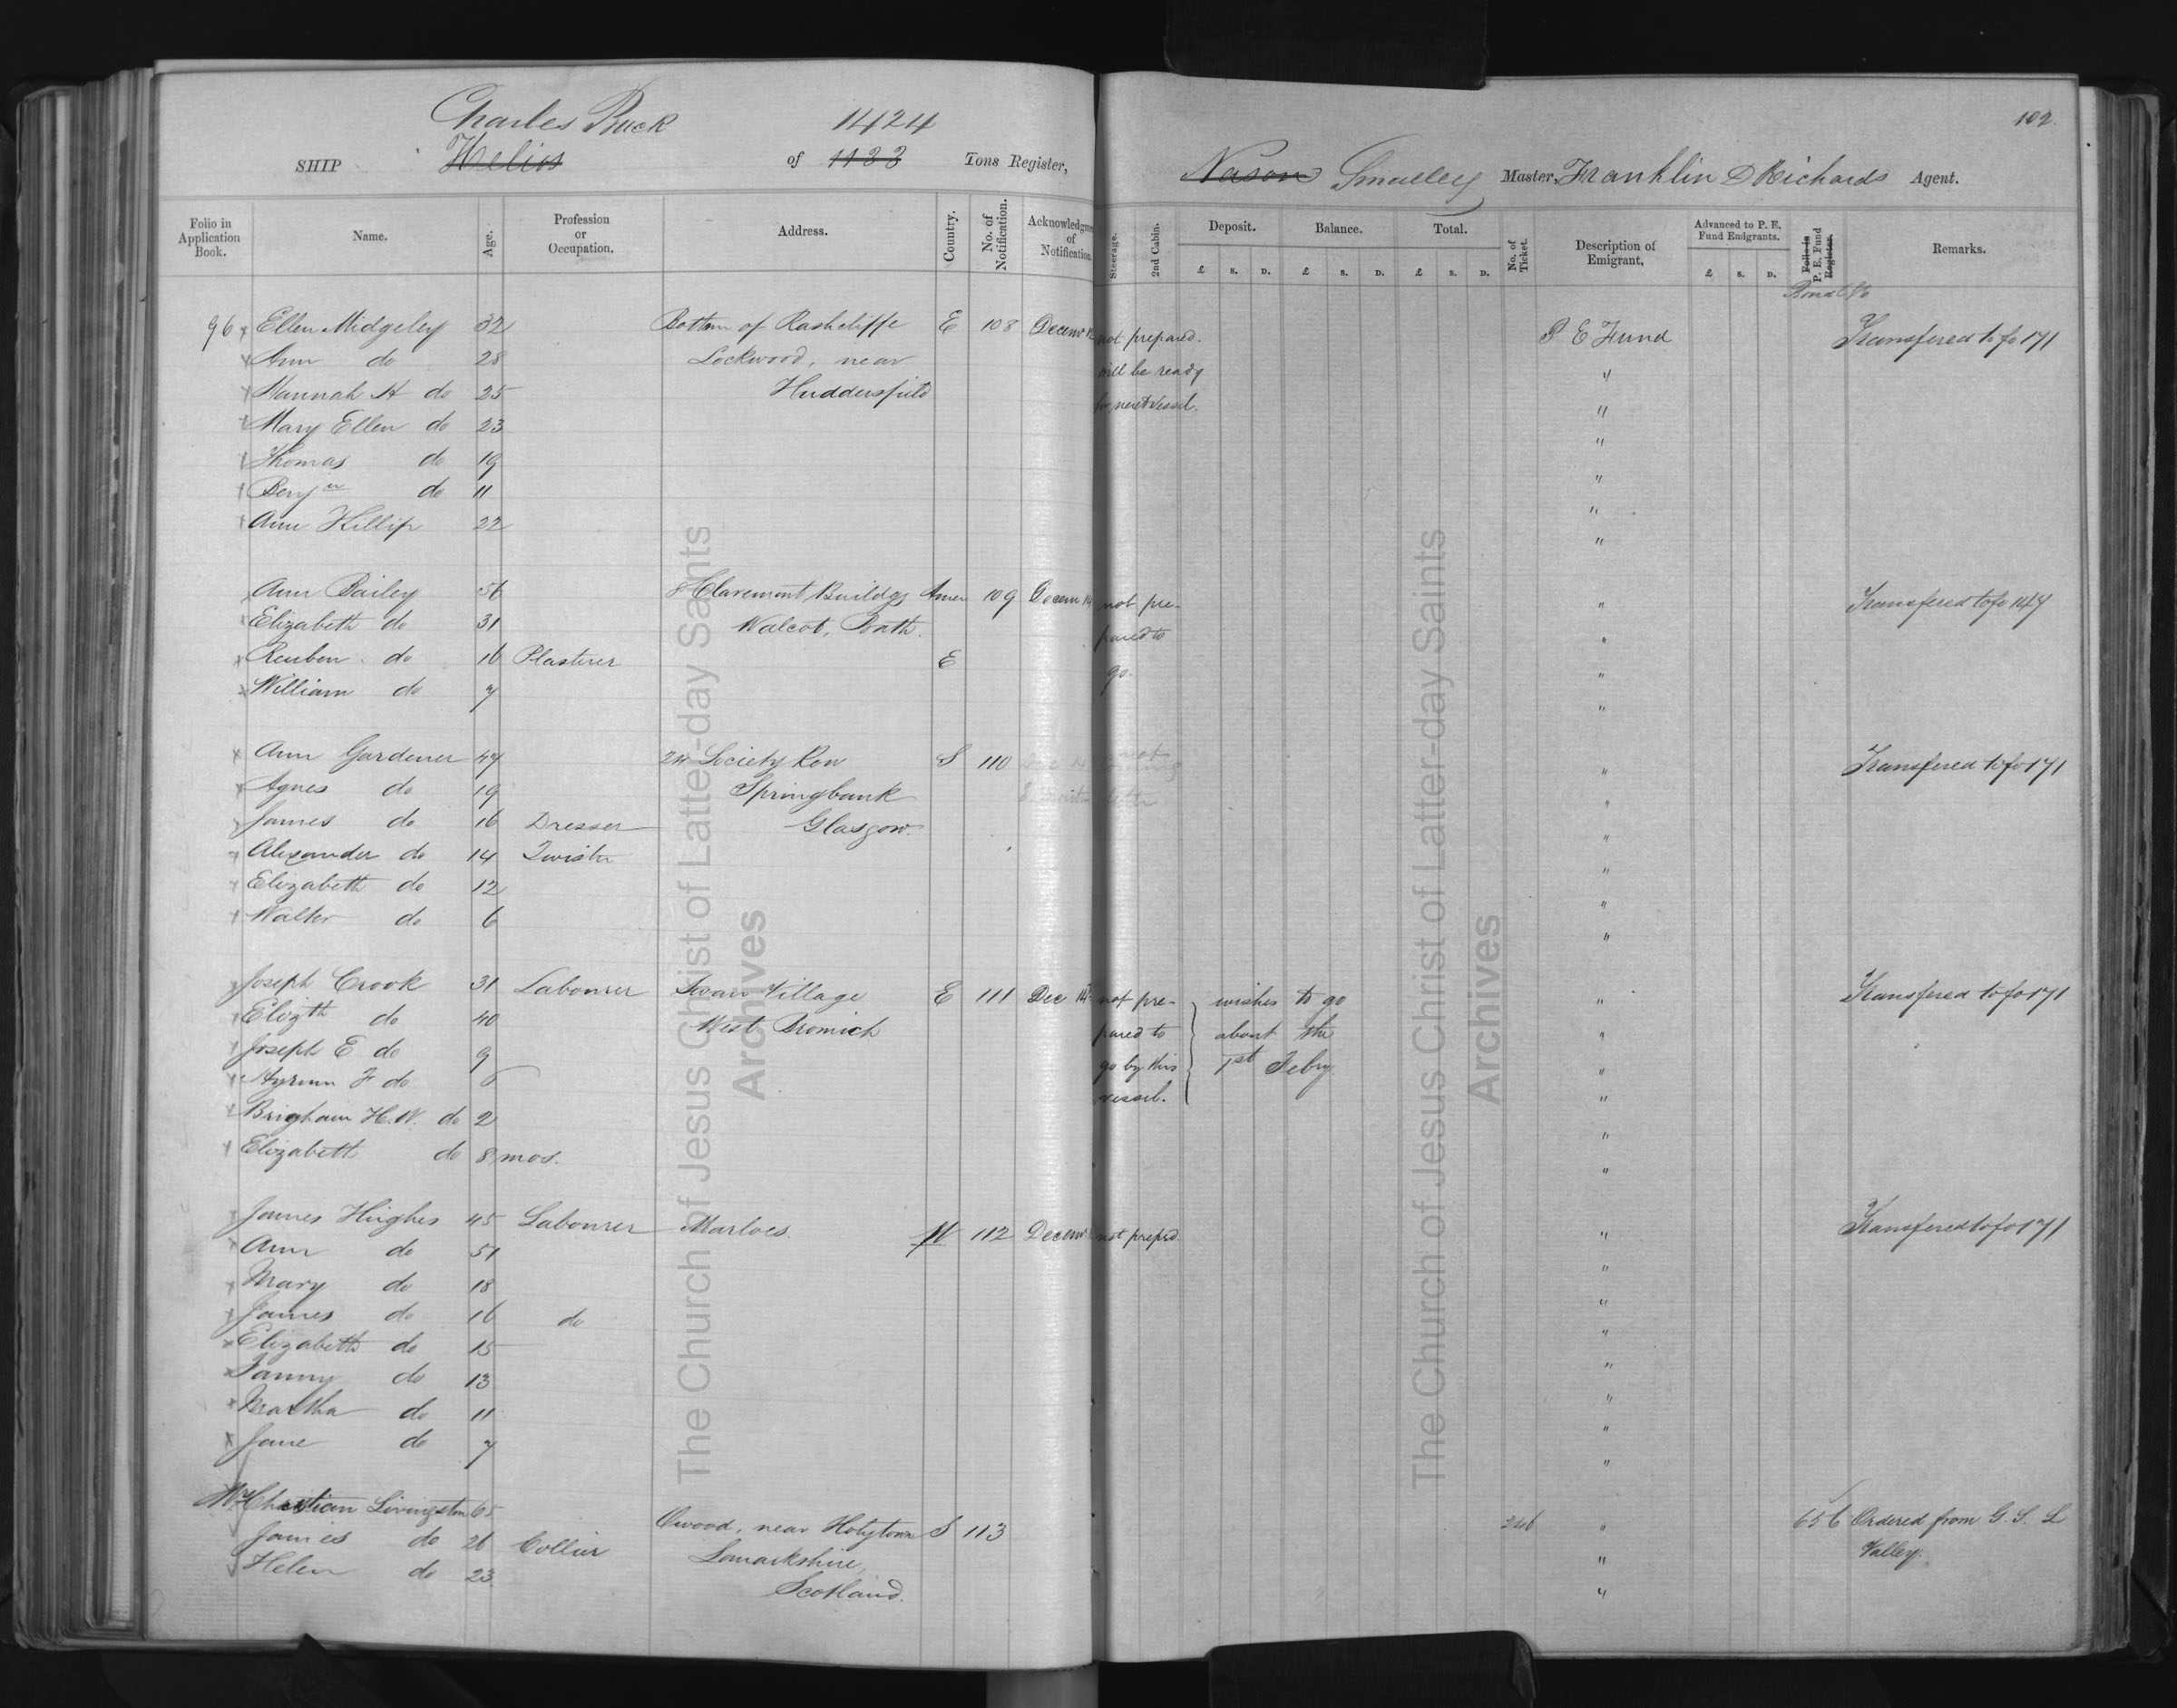 Charles Buck 1424
SHIP Helios of 1123 Tons Register,
Folio in Application Book. Name. Age. Profession or Occupation. Address. Country. No. of Notification. Acknowledgment of Notification.
96 Ellen Midgeley 32 Bottom of Rashcliffe E 108 Decem
Ann do 28 Lockwood, near
Hannah A do 25 Huddersfield
Mary Ellen do 23
Thomas do 19
Benjn do 11
Ann Hillip 22
Ann Bailey 56 8 Claremont Buildgs Amer 109 Decem 14
Elizabeth do 31 Walcot, Bath.
Reuben do 16 Plasterer E
William do 7
Ann Gardener 47 24 Society Row S 110
Agnes do 19 Springbank
James do 16 Dresser Glasgow.
Alexander do 14 Twister
Elizabeth do 12
Walter do 6
Joseph Crook 31 Labourer Swan Village E 111 Dec 14
Elizth do 40 West Bromich
Joseph E do 9
Hyrum F do 6
Brigham H. W. do 2
Elizabeth do 8 mos.
James Hughes 45 Labourer Marloes. W 112 Decem
Ann do 51
Mary do 18
James do 16 do
Elizabeth do 15
Fanny do 13
Martha do 11
Jane do 7
Christian Livingston 65 Owood, near Holytown S 113
James do 26 Collier Lanarkshire,
Helen do 23 Scotland.
The Church of Jesus Christ of Latter-day Saints
Archives
102.
Nason Smalley Master, Franklin D Richards Agent.
Steerage. 2nd Cabin. Deposit. Balance. Total. No. of Ticket. Description of Emigrant, Advanced to P. E. Fund Emigrants. Folio in P. E. Fund Register. Remarks.
£ S. D. £ S. D. £ S. D. £ S. D.
Bond No
not prepared. P E Fund Transfered to fo 171
will be ready "
for next vessel. "
"
"
"
"
not pre- " Transfered to fo 147
pared to "
go. "
"
not " Transfered to fo 171
"
"
"
"
"
not pre- wishes to go " Transfered to fo 171
pared to about the "
go by this 1st Feby. "
vessel. "
"
"
not prepd. " Transfered to fo 171
"
"
"
"
"
"
"
246 " 656 Ordered from G. S. L
" Valley.
"
The Church of Jesus Christ of Latter-day Saints
Archives